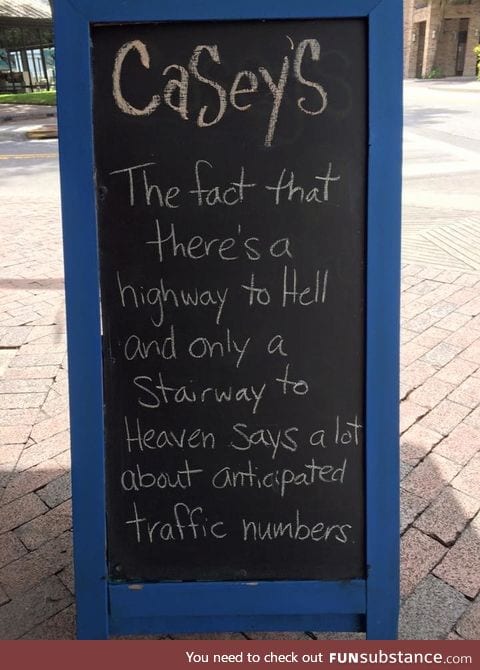 Casey's
The fact that
there's a
highway to Hell
and only a
Stairway to
Heaven says a lot
about anticipated
traffic numbers.
You need to check out FUNsubstance.com